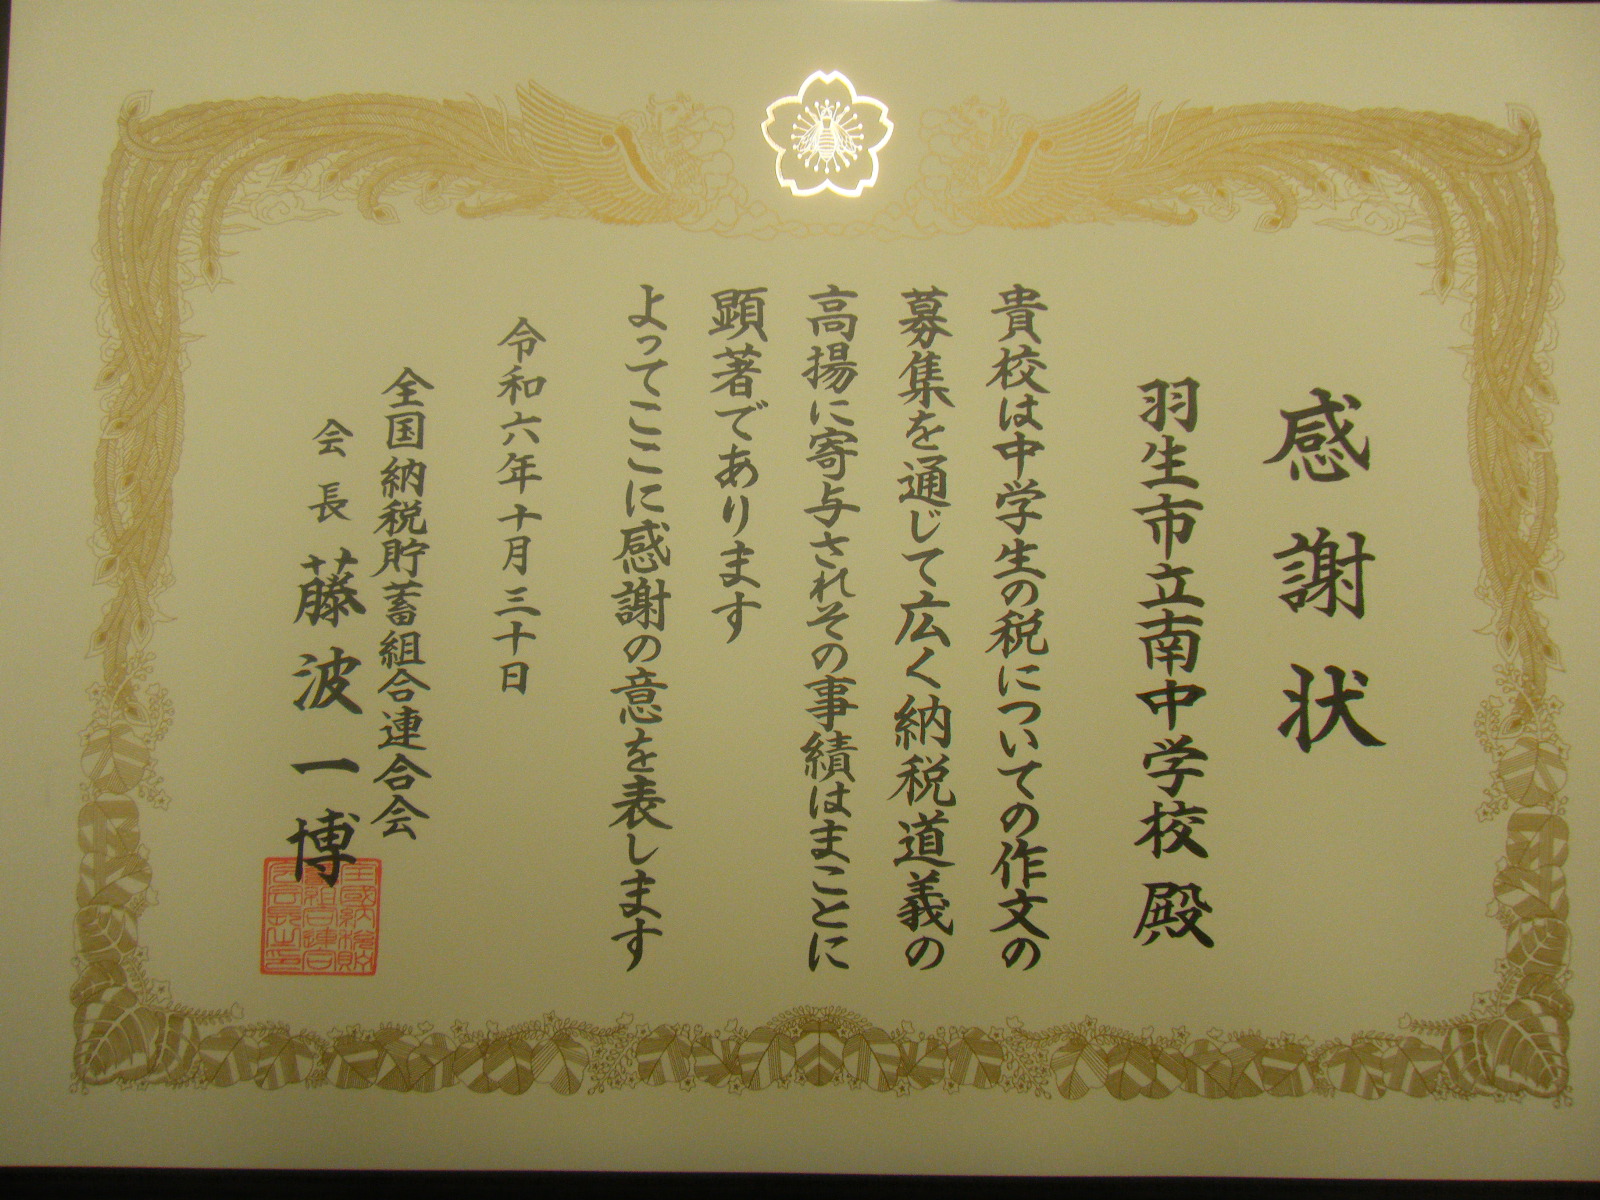 感謝状
羽生市立南中学校 殿
貴校は中学生の税についての作文の
募集を通じて広く納税道義の
高揚に寄与されその事績はまことに
顕著であります
よってここに感謝の意を表します
令和六年十月三十日
全国納税貯蓄組合連合会
会長 藤波一博